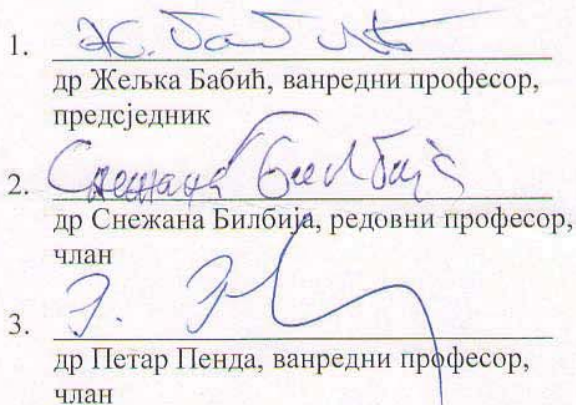 1. Ж. Бабић
др Жељка Бабић, ванредни професор,
предсједник
2. Снежана Билбија
др Снежана Билбија, редовни професор,
члан
3.
др Петар Пенда, ванредни професор,
члан